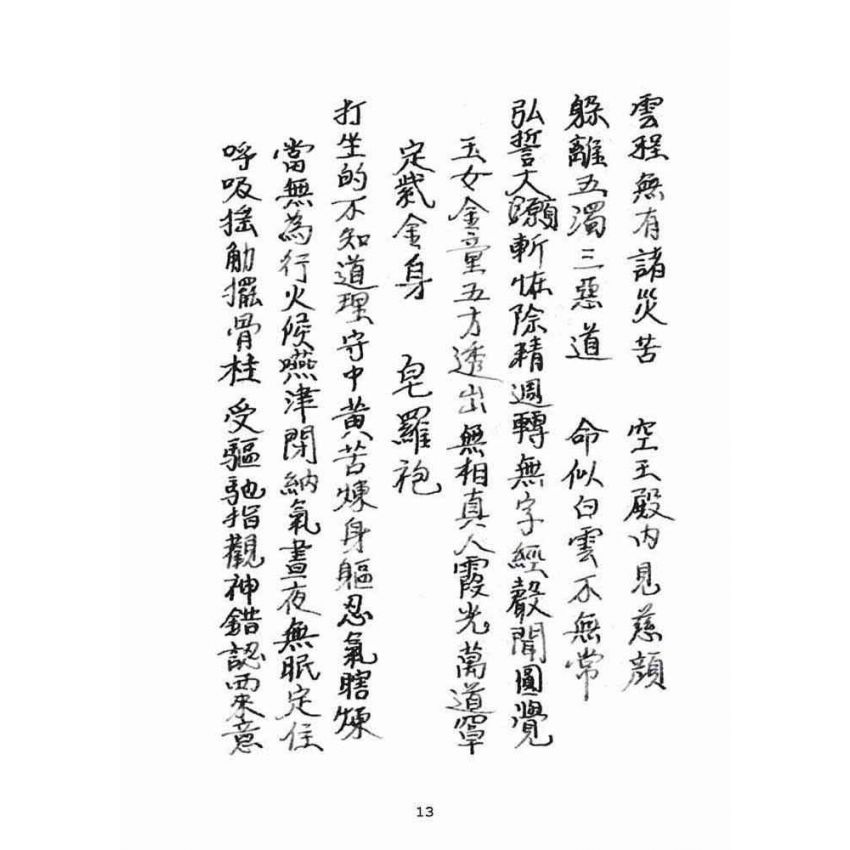 雲程無有諸災苦　空王殿內見慈顏
躲離五濁三惡道　命似白雲不無常
弘誓大願斬怪除精週轉無字經聲聞圓覺
玉女金童五方透出無相真人霞光萬道罩
定紫金身　皂羅袍
打坐的不知道理守中黃苦煉身軀忍氣瞎煉
當無為行火候嚥津閉納氣晝夜無眠定住
呼吸搖觔擺骨柱受驅馳指觀神錯認西來意
13